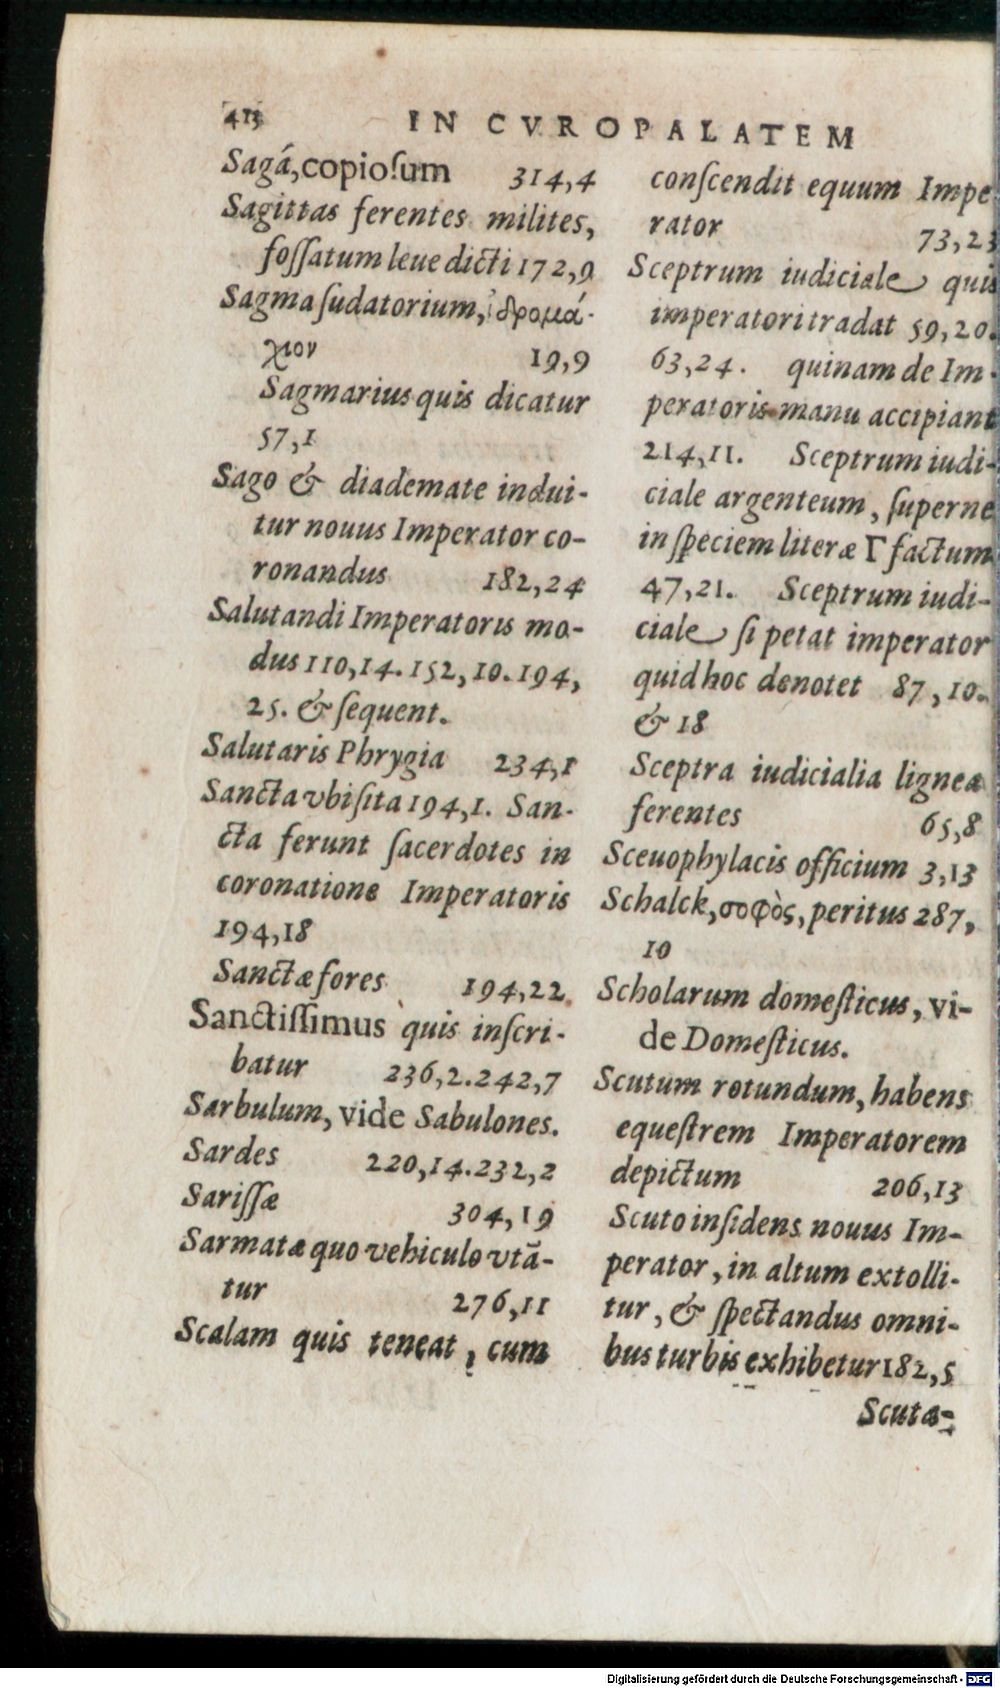 413 IN CVROPALATEM
Sagá, copioſum 314,4
Sagittas ferentes milites,
foſſatum leue dicti 172,9
Sagma ſudatorium, ἱδρομά-
χιον 19,9
Sagmarius quis dicatur
57,1
Sago & diademate indui-
tur nouus Imperator co-
ronandus 182,24
Salutandi Imperatoris mo-
dus 110,14. 152,10. 194,
25. & ſequent.
Salutaris Phrygia 234,1
Sancta vbi ſita 194,1. San-
cta ferunt ſacerdotes in
coronatione Imperatoris
194,18
Sanctæ fores 194,22
Sanctiſſimus quis inſcri-
batur 236,2. 242,7
Sarbulum, vide Sabulones.
Sardes 220,14. 232,2
Sariſſæ 304,19
Sarmatæ quo vehiculo vtā-
tur 276,11
Scalam quis teneat, cum
conſcendit equum Impe
rator 73,23
Sceptrum iudiciale quis
imperatori tradat 59,20.
63,24. quinam de Im-
peratoris manu accipiant
214,11. Sceptrum iudi-
ciale argenteum, ſuperne
in ſpeciem literæ Γ factum
47,21. Sceptrum iudi-
ciale ſi petat imperator
quid hoc denotet 87,10.
& 18
Sceptra iudicialia lignea
ferentes 65,8
Sceuophylacis officium 3,13
Schalck, σοφὸς, peritus 287,
10
Scholarum domeſticus, vi-
de Domeſticus.
Scutum rotundum, habens
equeſtrem Imperatorem
depictum 206,13
Scuto inſidens nouus Im-
perator, in altum extolli-
tur, & ſpectandus omni-
bus turbis exhibetur 182,5
Scuta-
Digitalisierung gefördert durch die Deutsche Forschungsgemeinschaft - DFG